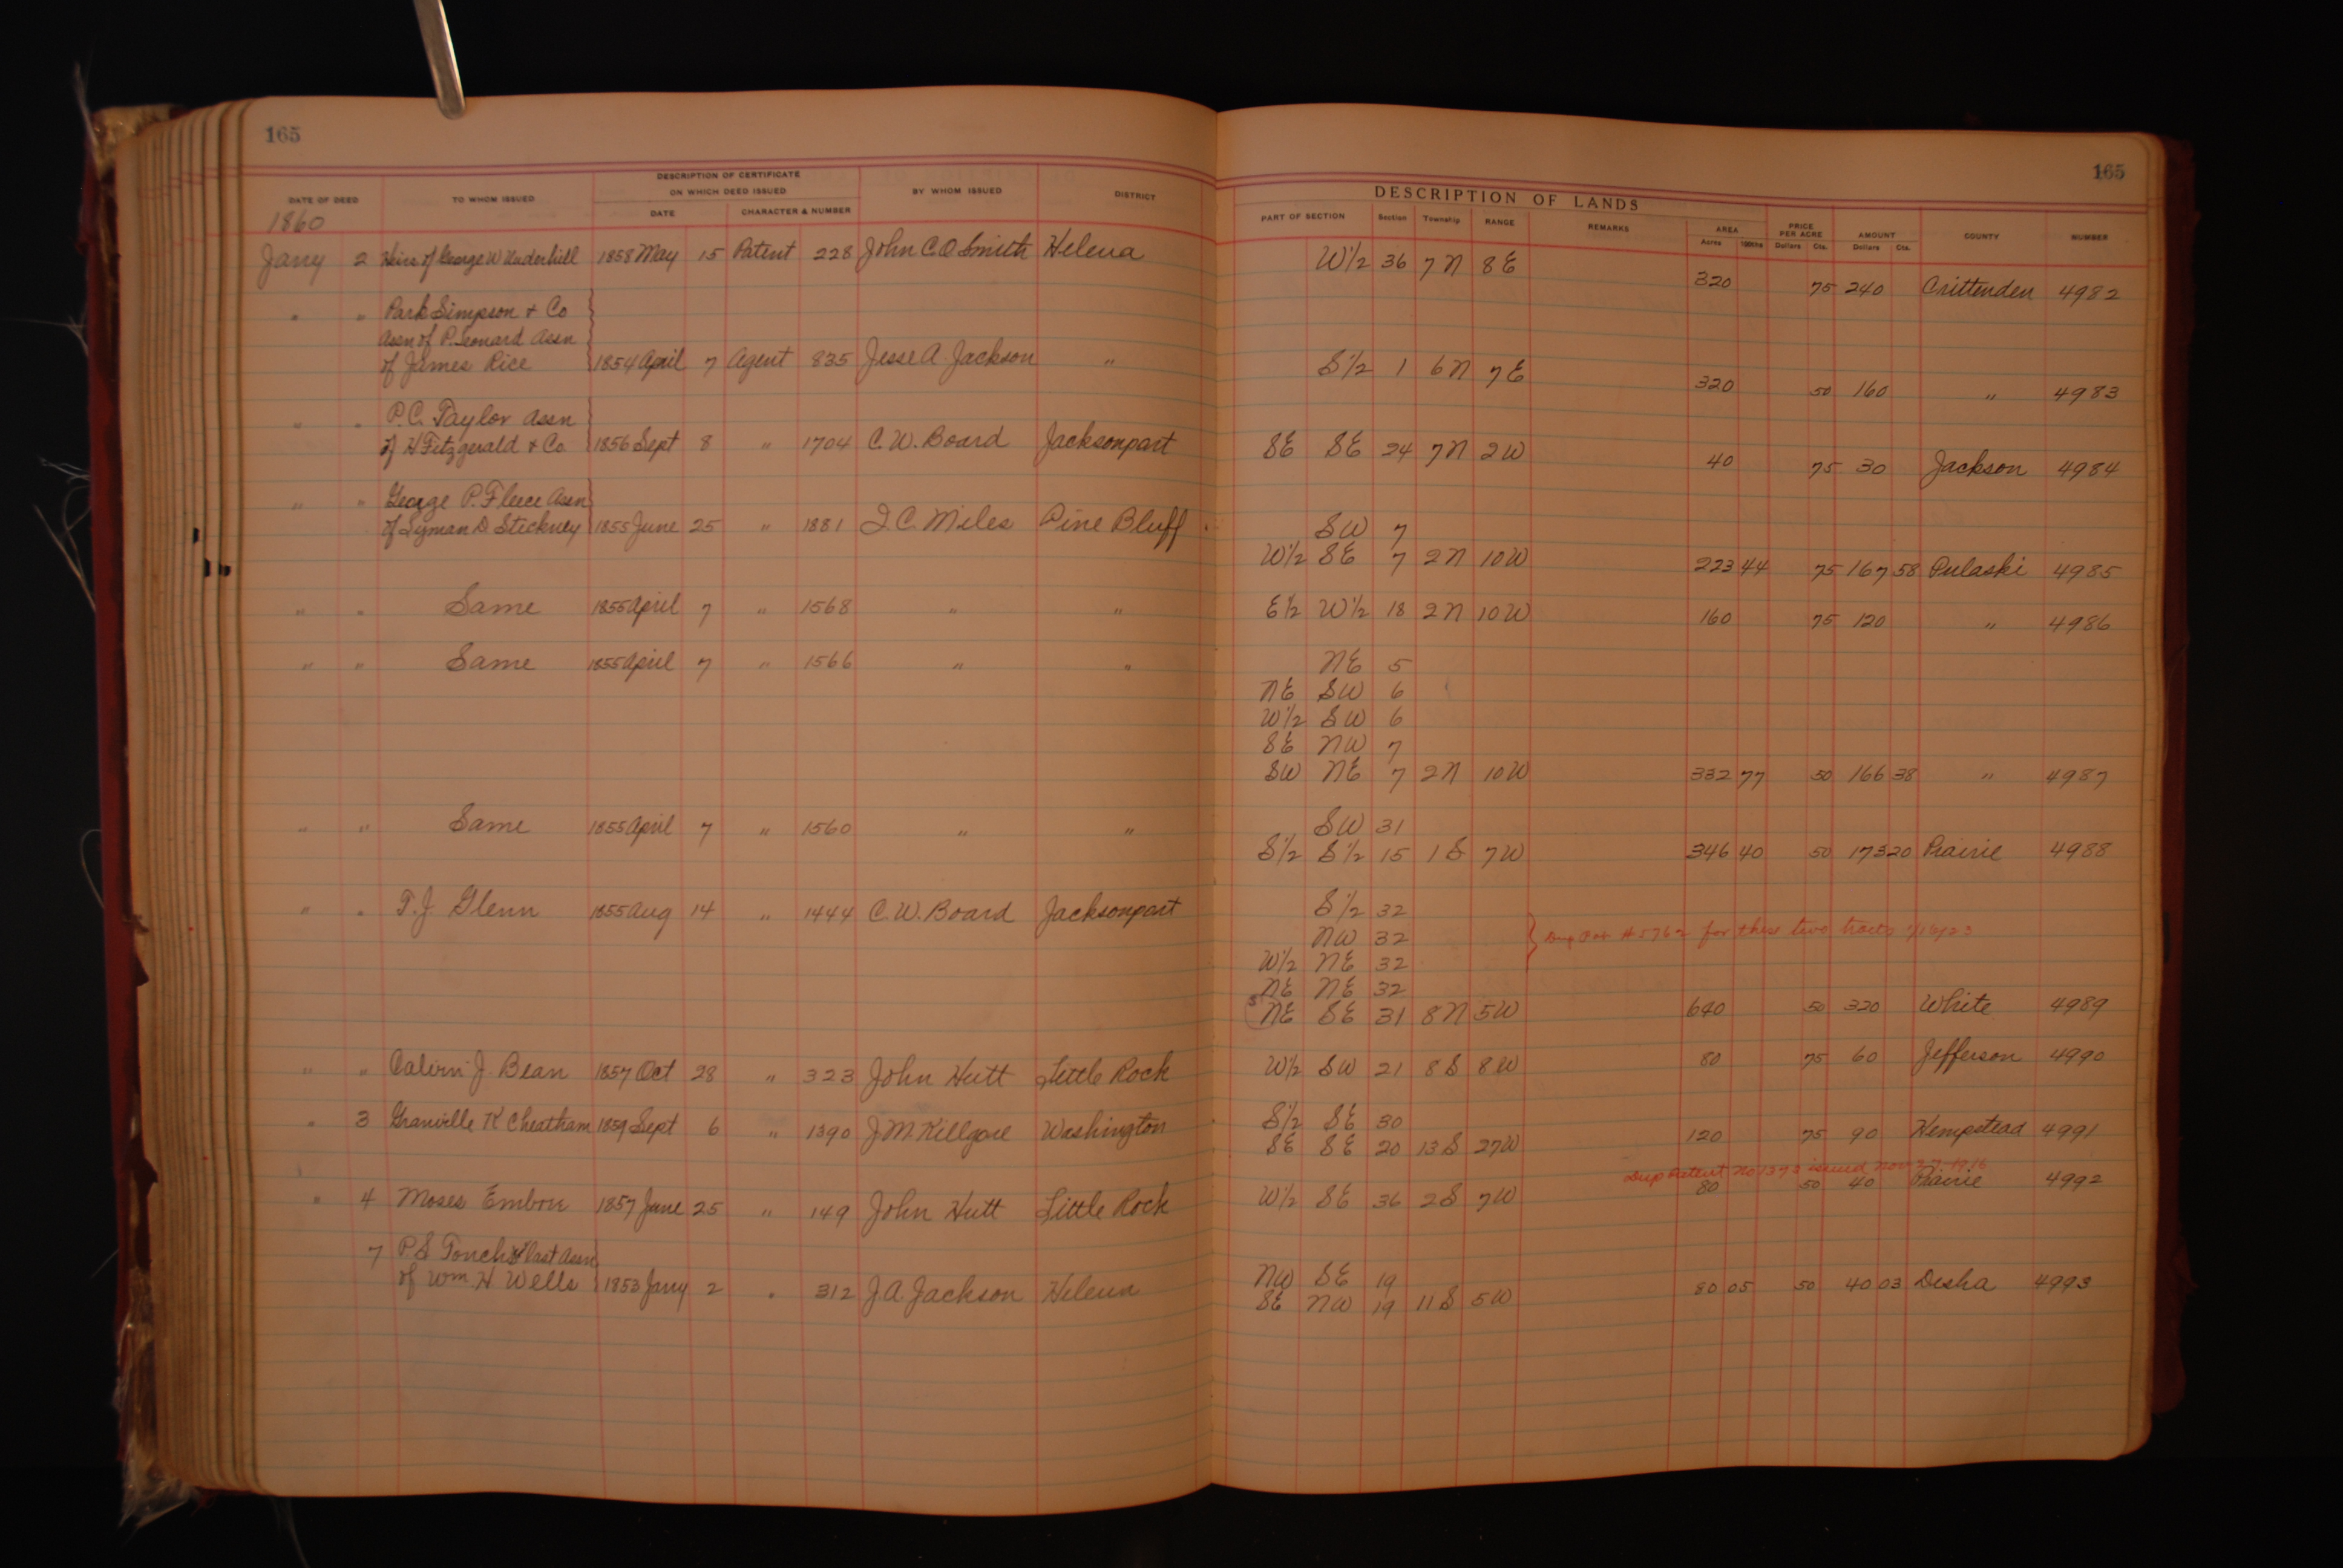 165
165
DATE OF DEED TO WHOM ISSUED DESCRIPTION OF CERTIFICATE ON WHICH DEED ISSUED BY WHOM ISSUED DISTRICT
DATE CHARACTER & NUMBER
DESCRIPTION OF LANDS
PART OF SECTION Section Township RANGE REMARKS AREA PRICE PER ACRE AMOUNT COUNTY NUMBER
Acres 100ths Dollars Cts. Dollars Cts.
1860
Jany 2 Heirs of George W Underhill 1858 May 15 Patent 228 John C.O. Smith Helena W 1/2 36 7 N 8 E 320 75 240 Crittenden 4982
" " Park Simpson & Co
Assn of P. Leonard Assn
of James Rice 1854 April 7 Agent 835 Jesse A. Jackson " S 1/2 1 6 N 7 E 320 50 160 " 4983
" " P.C. Taylor Assn
of H Fitzgerald & Co. 1856 Sept 8 " 1704 C.W. Board Jacksonport SE SE 24 7 N 2 W 40 75 30 Jackson 4984
" " George P. Fleece Assn
of Lyman D Stickney 1855 June 25 " 1881 I.C. Miles Pine Bluff SW 7
W 1/2 SE 7 2 N 10 W 223 44 75 167 58 Pulaski 4985
" " Same 1855 April 7 " 1568 " " E 1/2 W 1/2 18 2 N 10 W 160 75 120 " 4986
" " Same 1855 April 7 " 1566 " " NE 5
NE SW 6
W 1/2 SW 6
SE NW 7
SW NE 7 2 N 10 W 332 77 50 166 38 " 4987
" " Same 1855 April 7 " 1560 " " SW 31
S 1/2 S 1/2 15 1 S 7 W 346 40 50 173 20 Prairie 4988
" " T.J. Glenn 1855 Aug 14 " 1444 C.W. Board Jacksonport S 1/2 32
NW 32 for these two tracts
W 1/2 NE 32
NE NE 32
NE SE 31 8 N 5 W 640 50 320 White 4989
" " Calvin J. Bean 1857 Oct 28 " 323 John Hutt Little Rock W 1/2 SW 21 8 S 8 W 80 75 60 Jefferson 4990
" 3 Granville K Cheatham 1859 Sept 6 " 1390 J.M. Killgore Washington S 1/2 SE 30
SE SE 20 13 S 27 W 120 75 90 Hempstead 4991
Dup Patent No 1373 issued Nov 27 1916
" 4 Moses Embon 1857 June 25 " 149 John Hutt Little Rock W 1/2 SE 36 2 S 7 W 80 50 40 Prairie 4992
7 P.S. last Assn
of Wm. H. Wells 1853 Jany 2 " 312 J.A. Jackson Helena NW SE 19
SE NW 19 11 S 5 W 80 05 50 40 03 Desha 4993